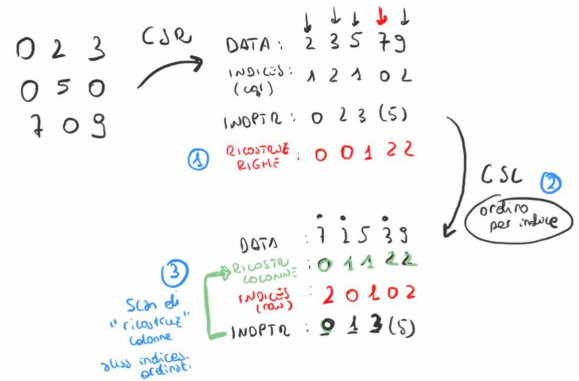 0 2 3
0 5 0
7 0 9
CSR
DATA: 2 3 5 7 9
INDICES: 1 2 1 0 2
(col)
INDPTR: 0 2 3 (5)
1 RICOSTRUZ RIGHE: 0 0 1 2 2
CSC 2
ordino
per indice
DATA: 7 2 5 3 9
RICOSTR COLONNE: 0 1 1 2 2
INDICES (row): 2 0 1 0 2
INDPTR: 0 1 3 (5)
3
Scan di
"ricostruz"
colonne
indices
ordinati